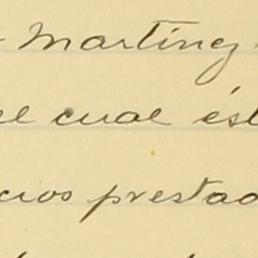 Martínez
el cual ést
cios prestad